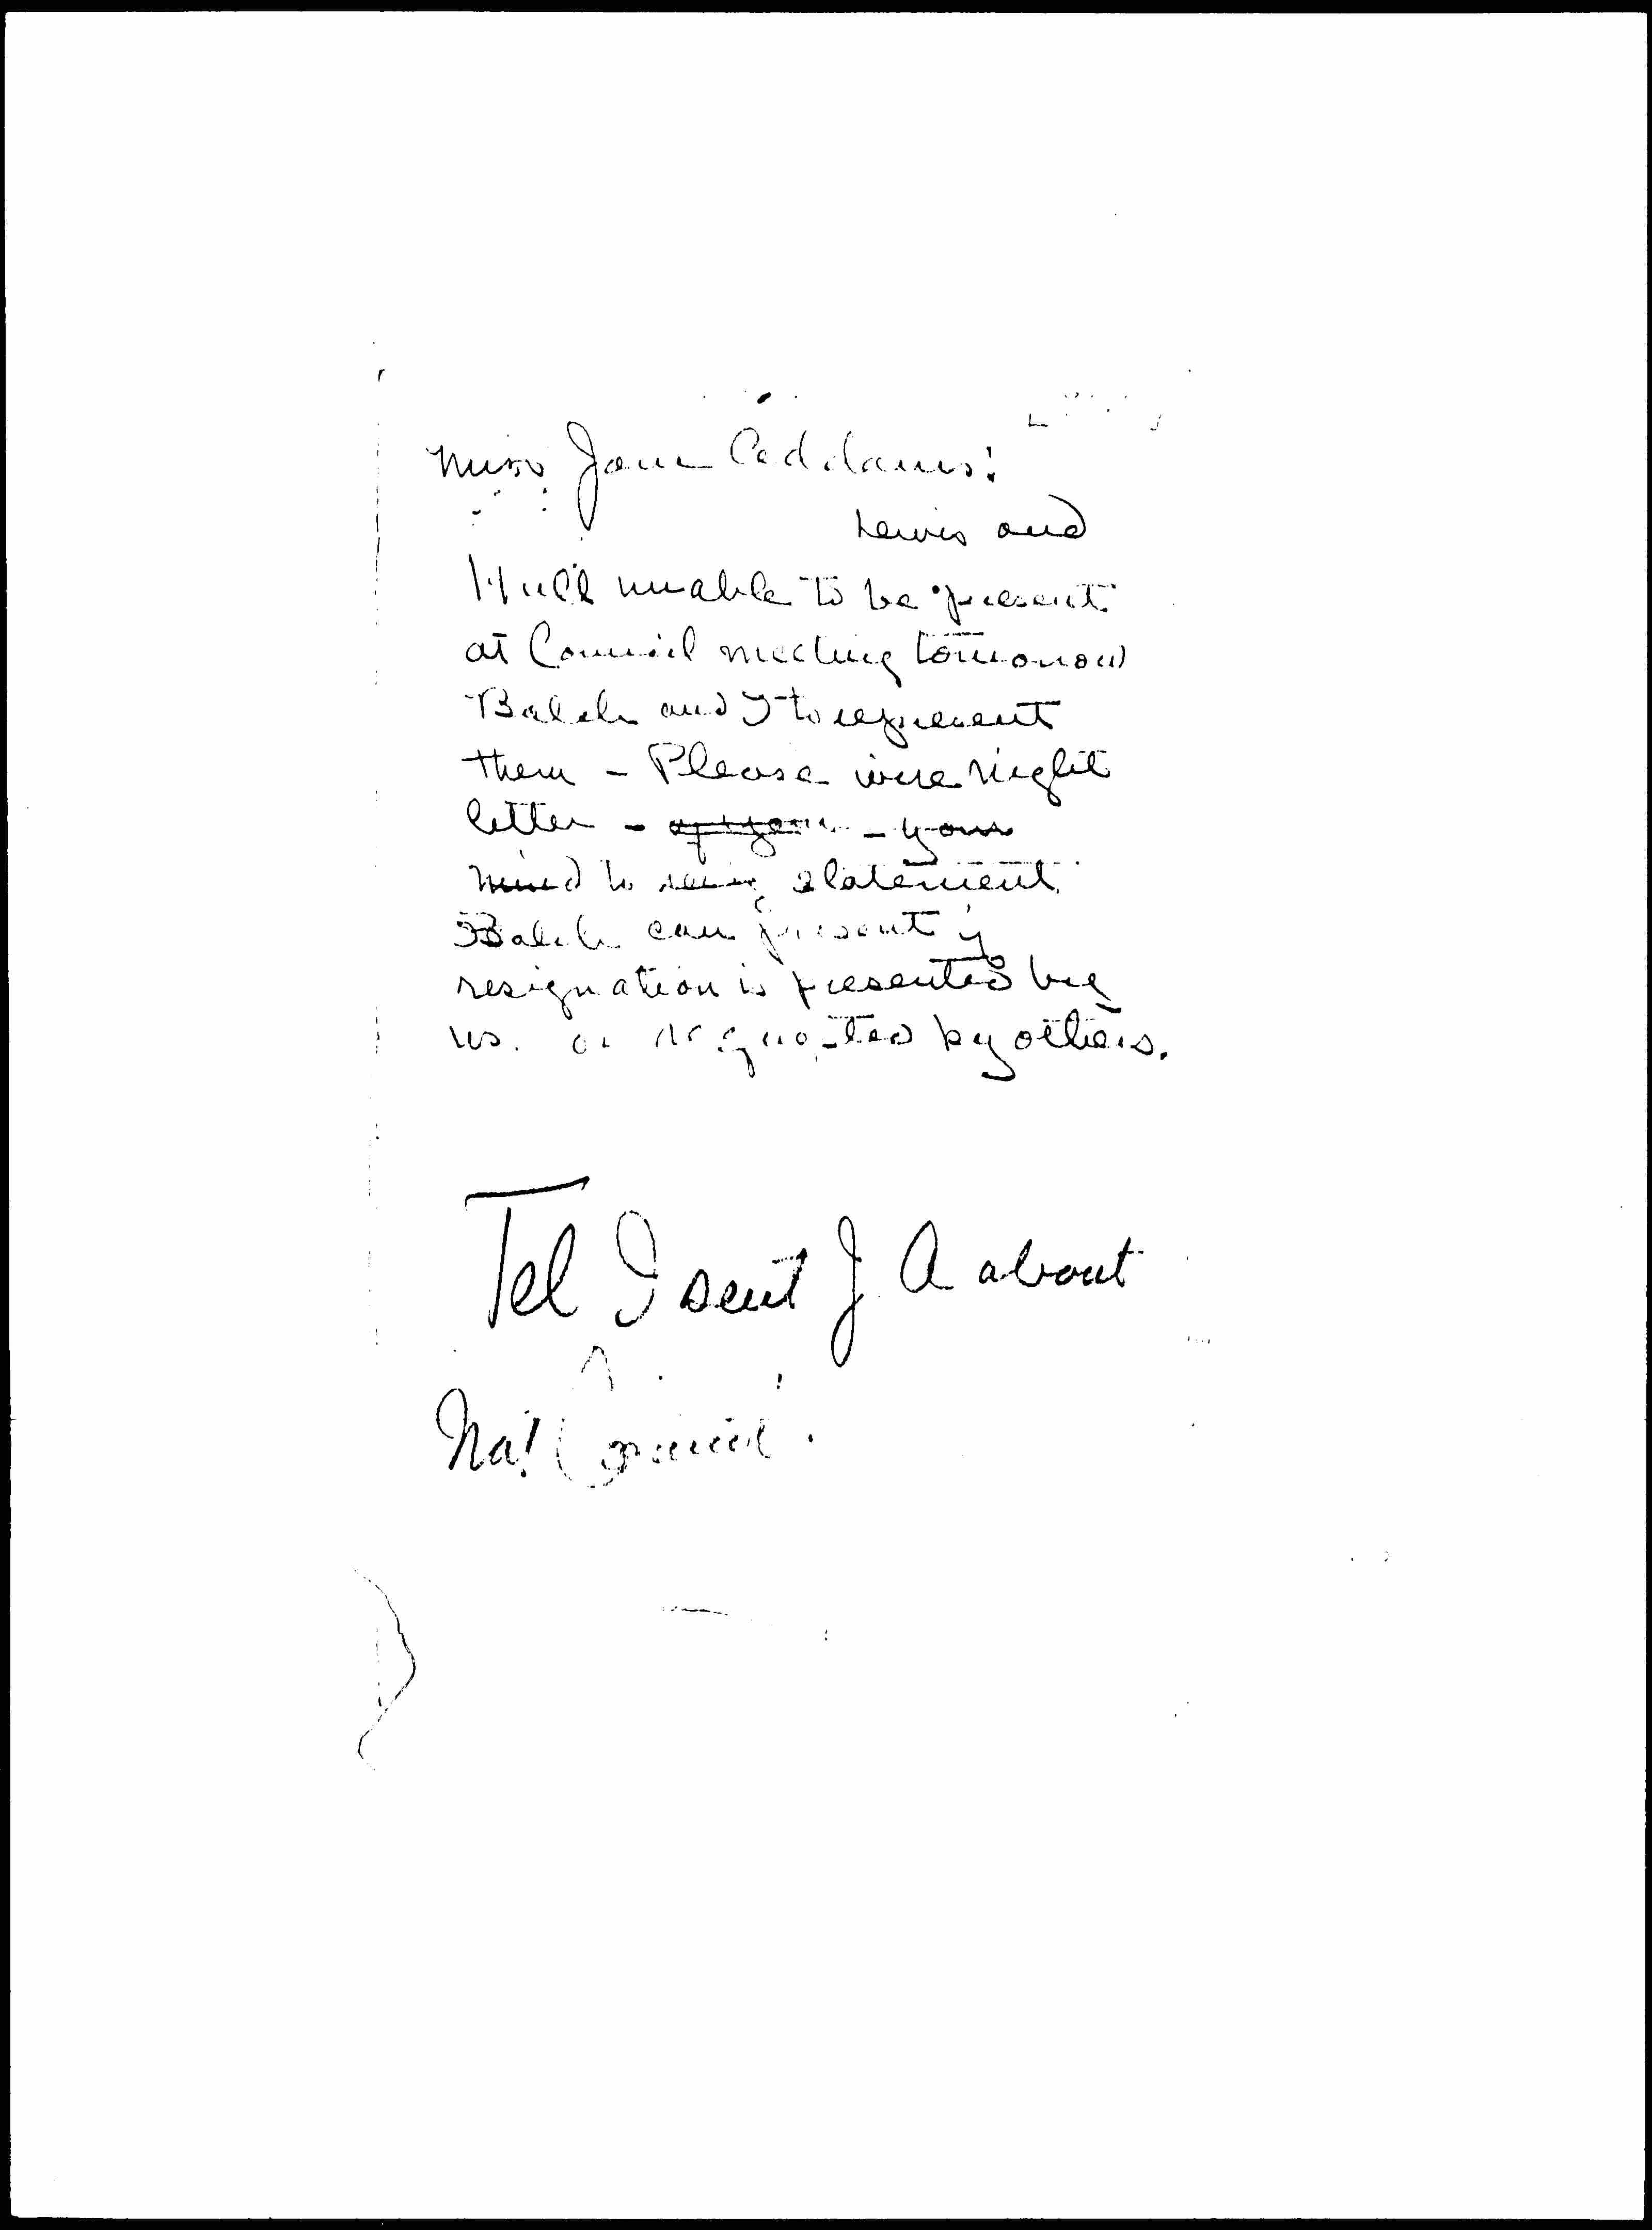 Miss Jane Addams:
Lewis and
Hull unable to be present
at Council meeting tomorrow
Balch and I to represent
them - Please wire night
letter - if you - your
mind to statement
Balch can present if
resignation is presented by
us. or requested by others.
Tel I sent J. A about
Nat Council.